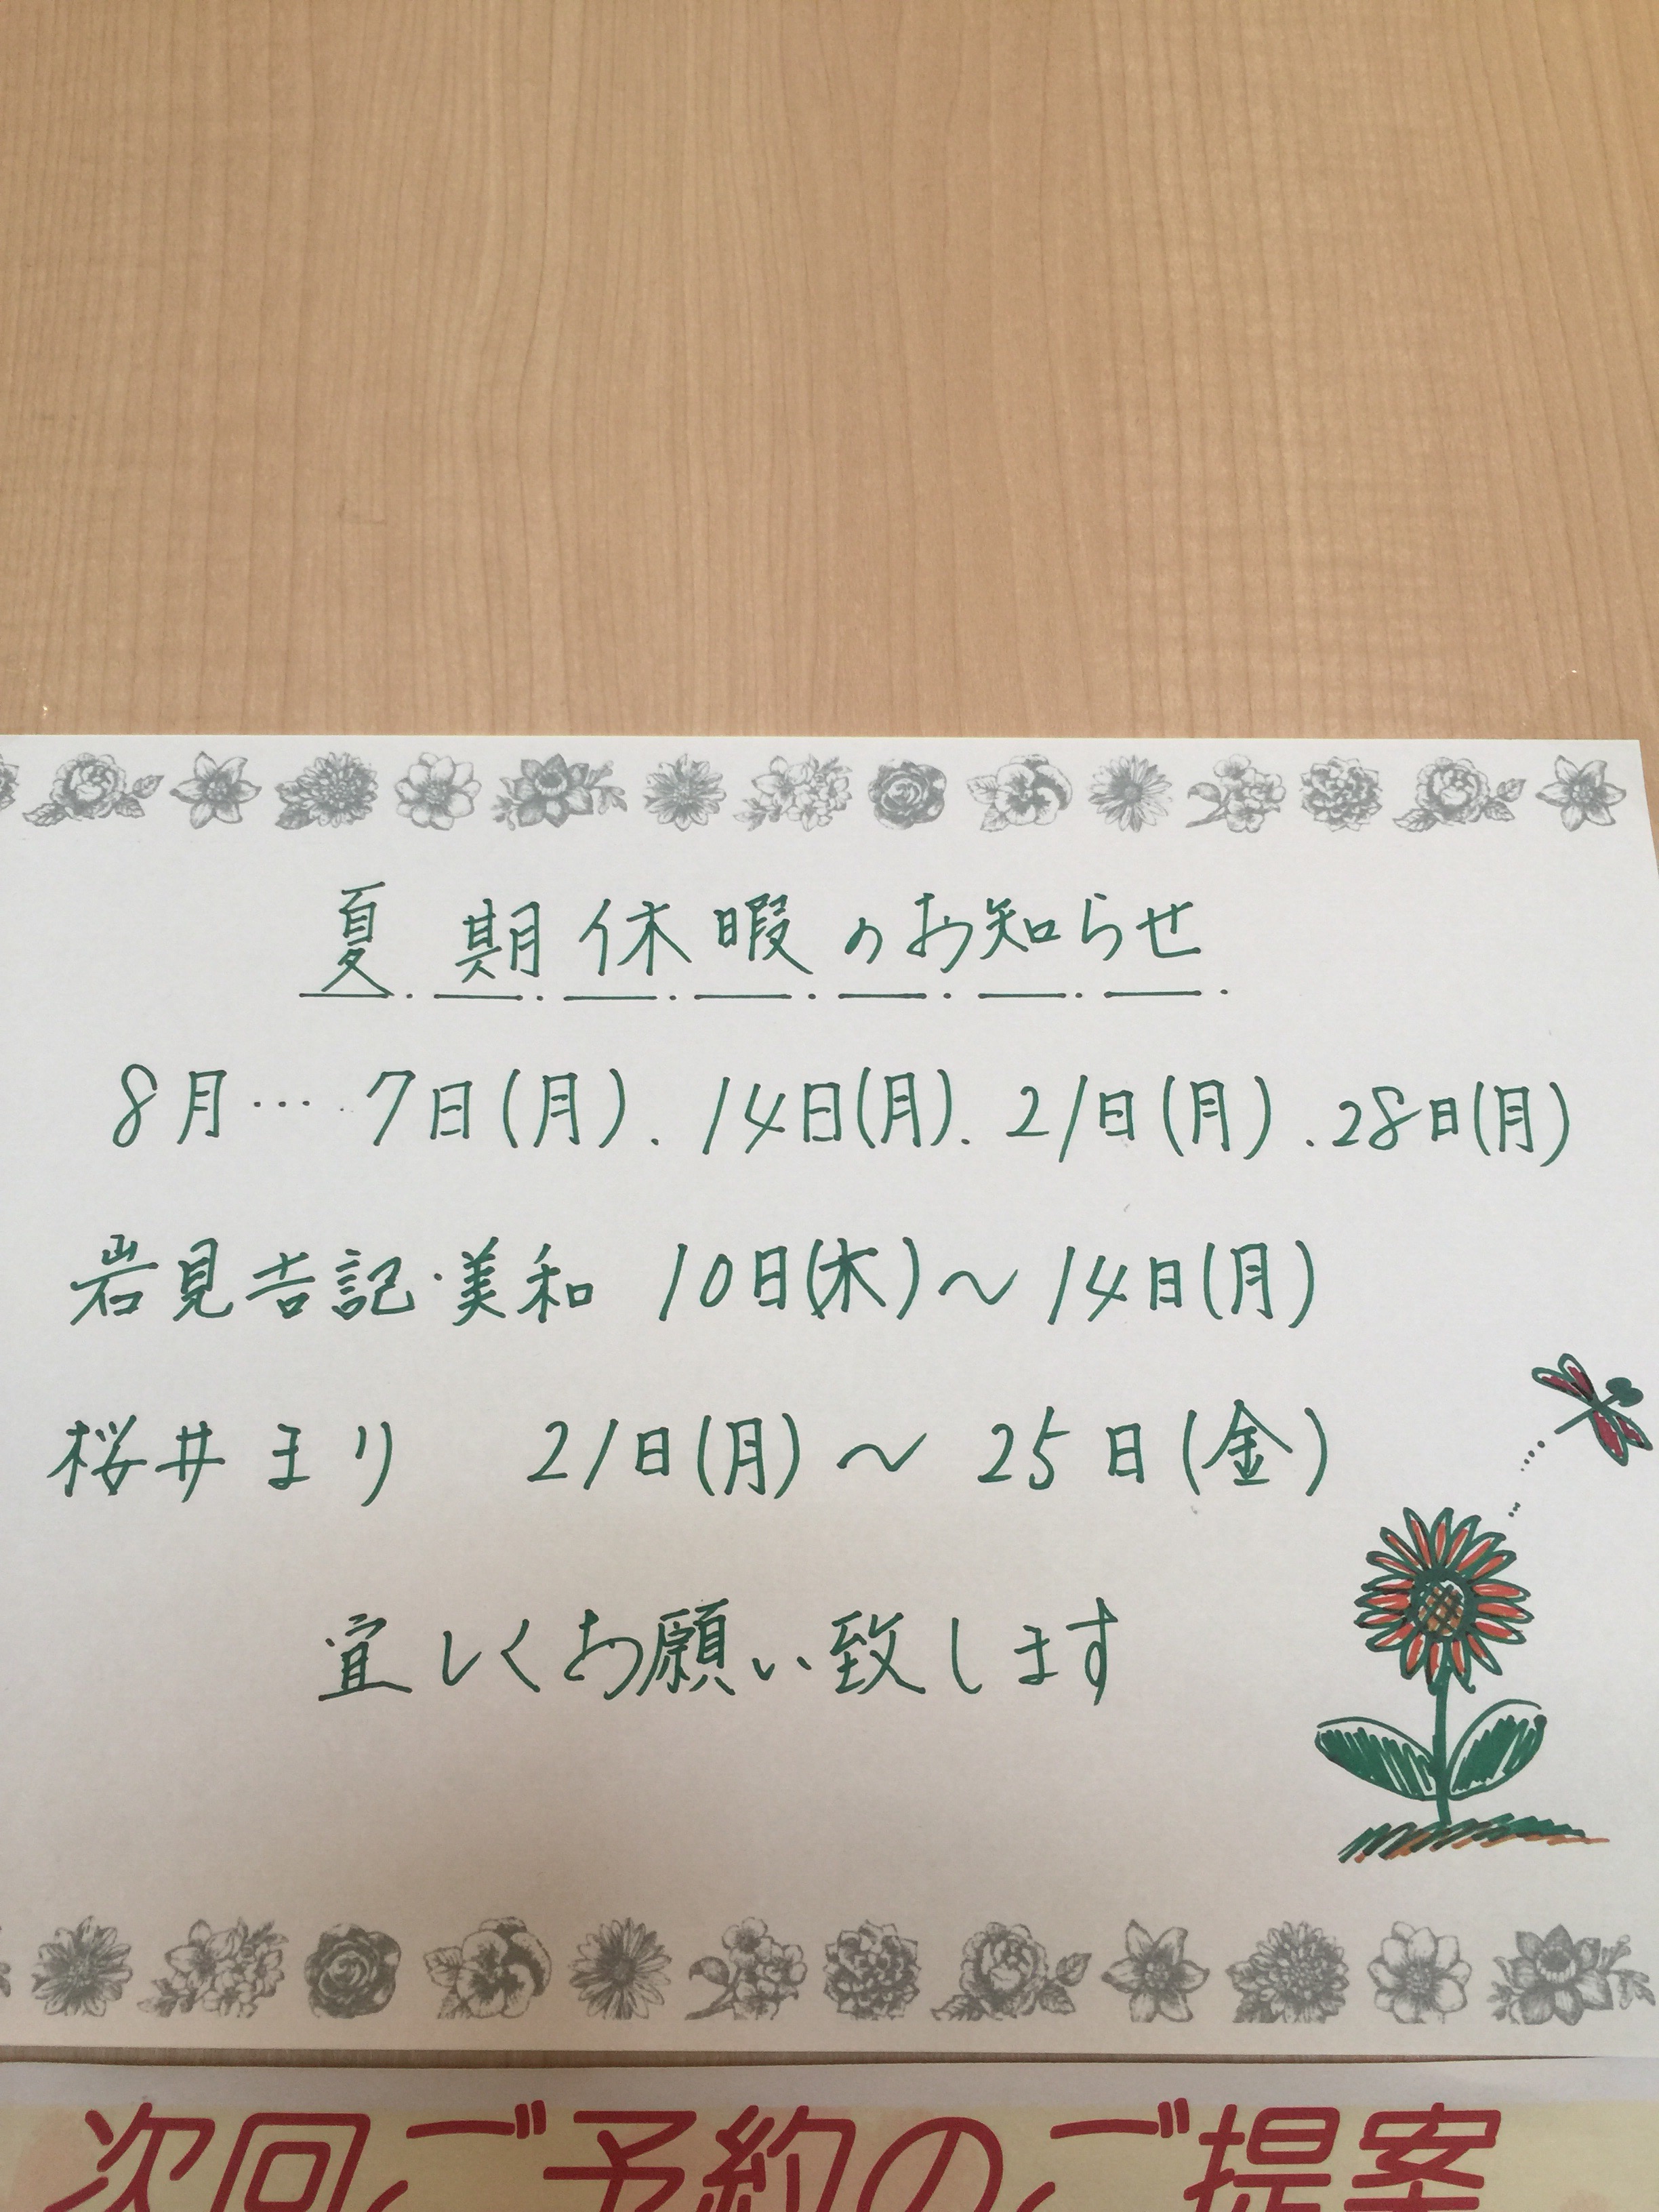 夏期休暇のお知らせ
8月… 7日(月).14日(月).21日(月).28日(月)
岩見吉記・美和 10日(木)～14日(月)
桜井まり 21日(月)～25日(金)
宜しくお願い致します
次回ご予約のご提案